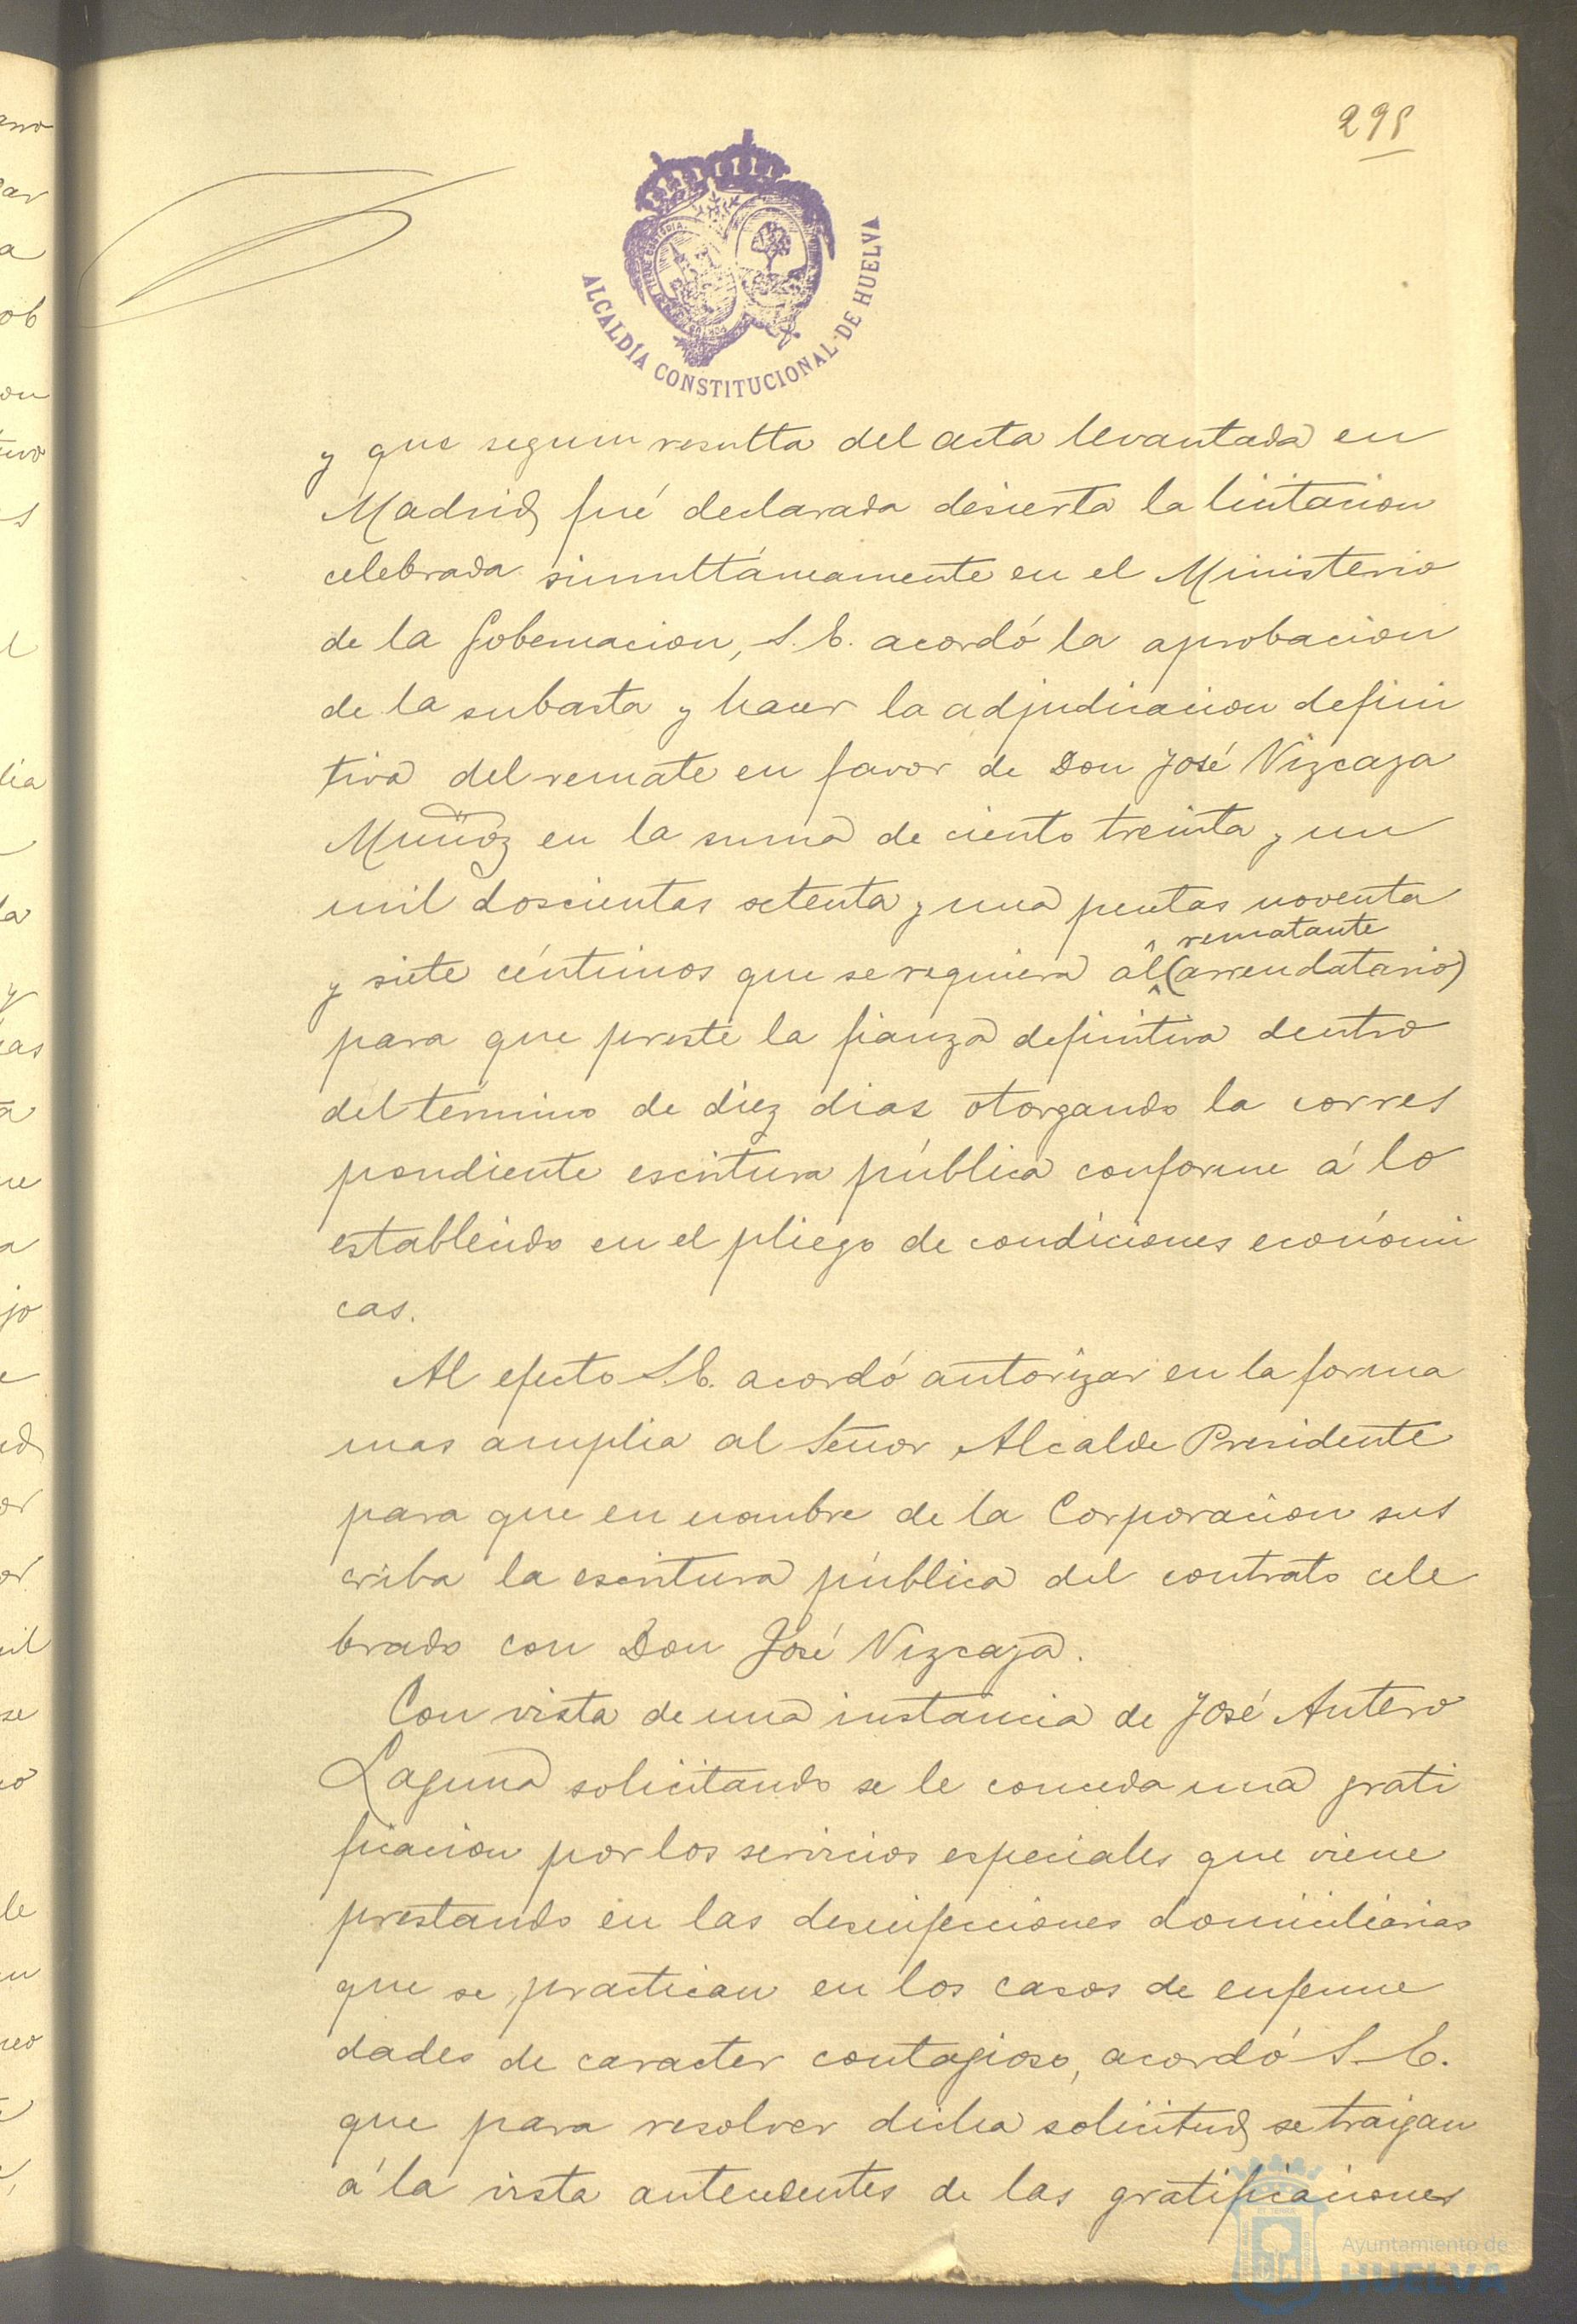 ALCALDÍA CONSTITUCIONAL DE HUELVA
y que segun resulta del acta levantada en
Madrid, fué declarada desierta la licitacion
celebrada simultáneamente en el Ministerio
de la Gobernacion, S. E. acordó la aprobacion
de la subasta y hacer la adjudicacion defini
tiva del remate en favor de Don José Vizcaya
Muñoz en la suma de ciento treinta y un
mil doscientas setenta y una pesetas noventa
rematante
y siete céntimos que se requiera al (arrendatario)
para que preste la fianza definitiva dentro
del término de diez dias otorgando la corres
pondiente escritura pública conforme á lo
establecido en el pliego de condiciones económi
cas.
Al efecto S. E. acordó autorizar en la forma
mas amplia al Señor Alcalde Presidente
para que en nombre de la Corporacion sus
criba la escritura pública del contrato cele
brado con Don José Vizcaya.
Con vista de una instancia de José Antero
Laguna solicitando se le conceda una grati
ficacion por los servicios especiales que viene
prestando en las desinfecciones domiciliarias
que se practican en los casos de enferme
dades de caracter contagioso, acordó S. E.
que para resolver dicha solicitud se traigan
á la vista antecedentes de las gratificaciones
Ayuntamiento de
HUELVA